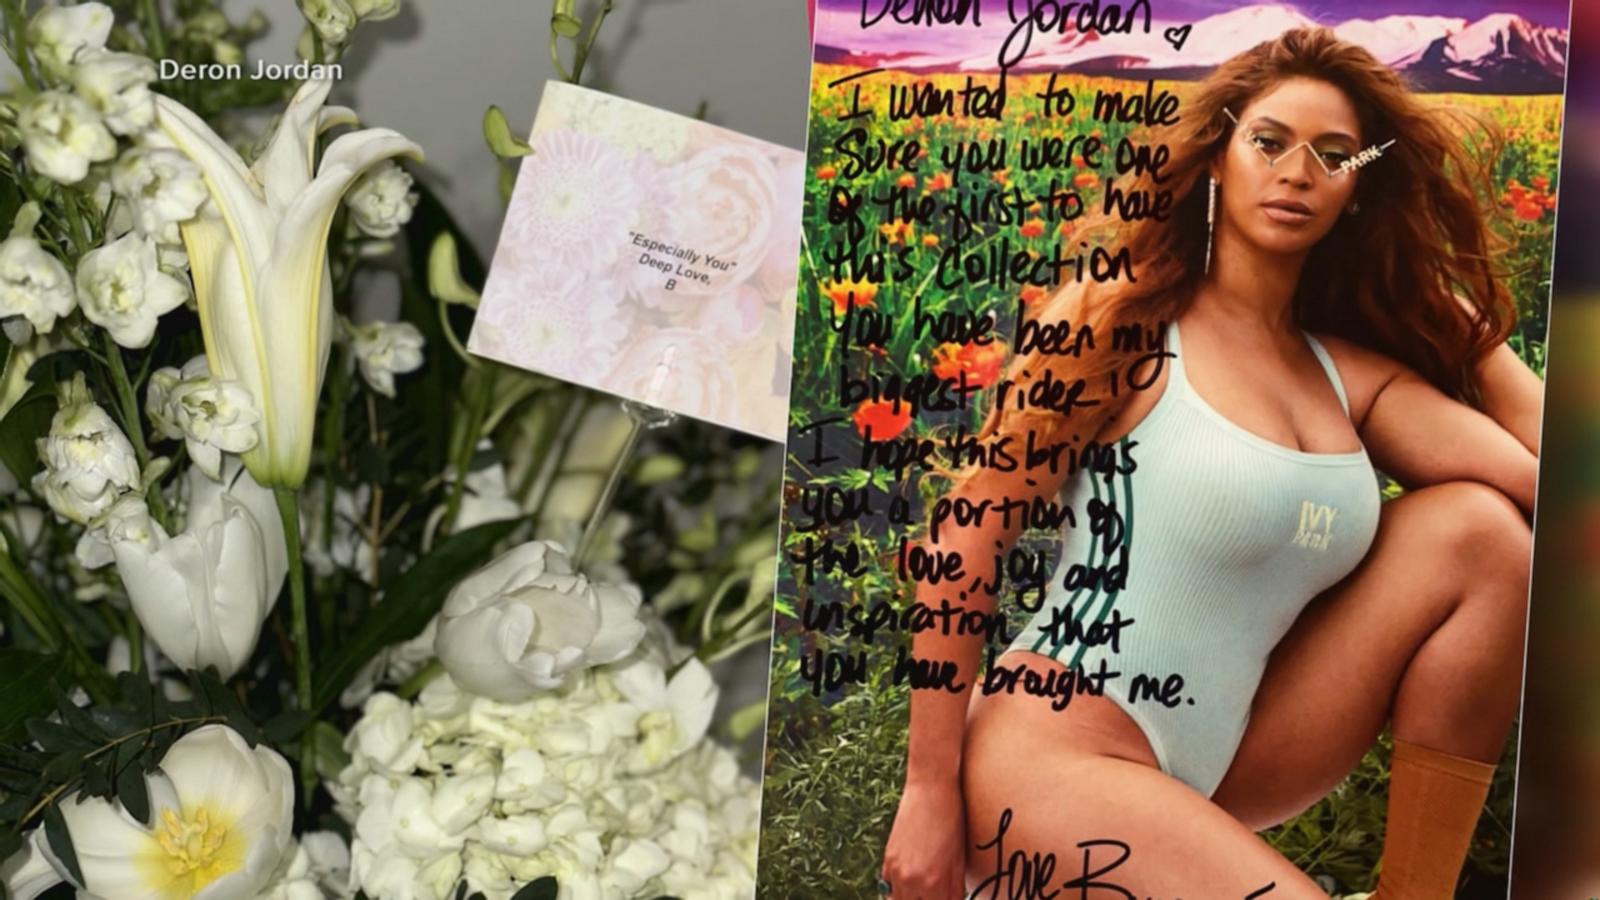 Deron Jordan
"Especially You"
Deep Love,
B
Deron Jordan
I wanted to make
Sure you were one
of the first to have
this Collection
you have been my
biggest rider!
I hope this brings
you a portion of
the love, joy and
inspiration that
you have brought me.
Love B
PARK
IVY
PARK